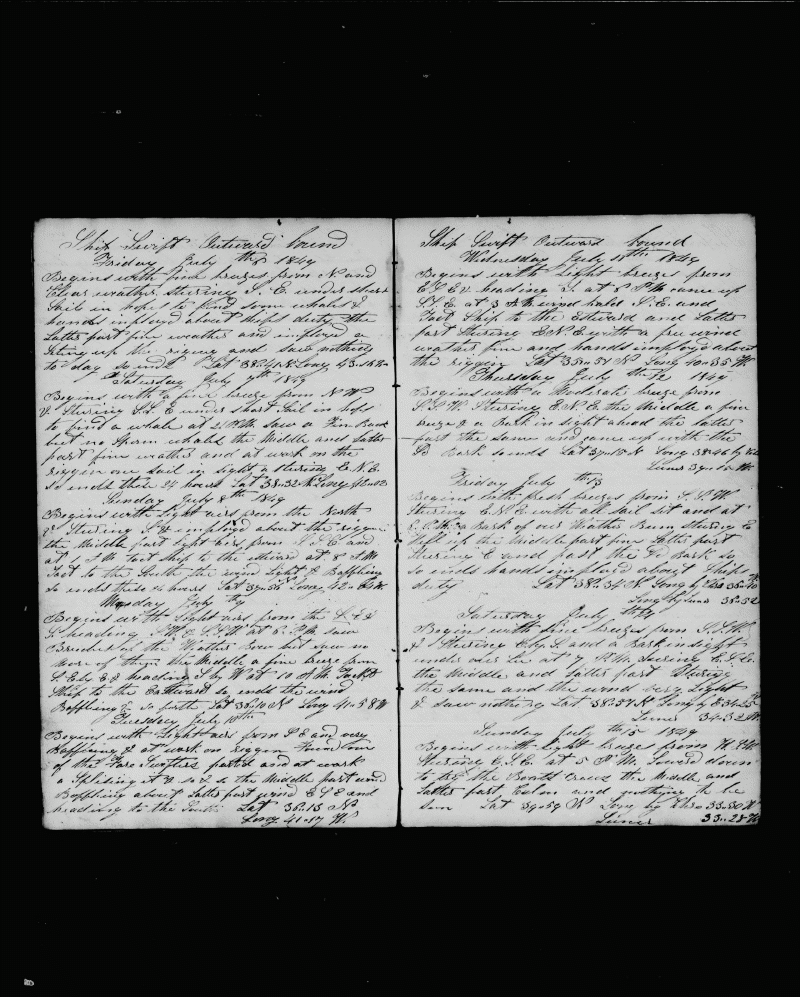 Ship Swift Outward bound
Friday July th6 1849
Begins with fine breezes from N and
Clear weather stering S. E. under short
Sail in hopes to find some whales &
hands imployed about ships duty the
Latter part fine weather and imployed a
Seting up the riging and saw nothing
to day so ends Lat 38..41 N Long 43..
Saturday July 7th 1849
Begins with a fine breeze from N W
& Stering S E under short Sail in hops
to find a whale at 2 P.M. Saw a Fin Back
but no Sperm whales the Middle and Latter
part fine weather and at work on the
riggin one sail in sight a stering E. N. E.
So ends these 24 hours Lat 38..32 N Long 42..
Sunday July 8th 1849
Begins with Light airs from the North
& Stering S. & imployed about the riggin
the Middle part Light airs from S E and
at P M Tact Ship to the at 8 P.M.
Tact to the South the wind Light & Baffling
So ends these 24 hours Lat Long 42..
Monday July th9
Begins with Light airs from the
S. heading S.W. & S.S.W. at 5. P.M. saw
of the Weather Bow but saw no
more of them the Middle a fine breeze from
S E by E & heading S by W at 10 A.M. Tackt
Ship to the Eastward so ends the wind
Baffling & so forth Lat 38..10 N Long 41..58 W
Tuesday July 10th
Begins with Light airs from S E and very
Baffling & at work on riggin Find one
of the Fore parted and at work
a Spliceing it & so & so the Middle part wind
Baffling about Latter part wind E S E and
heading to the South Lat 38..13 N
Long 41..17 W.
Ship Swift Outward bound
Wednesday July 11th 1849
Begins with Light breezes from
E S E & heading S. at 8 P M came up
S S E at 3 A M wind hald S. E. and
Tact Ship to the Estward and Latter
part Stering E N E with a free wind
weather fine and hands imployd about
the riggin Lat 38..51 N Long 40..35 W.
Thursday July th12 1849
Begins with a Moderate breeze from
S.S.W. Stering E. N. E. the Middle a fine
breeze & a Bark in sight ahead the Latter
part the same and came up with the
Sd Bark so ends Lat 39..18 N Long 38..46 by
Luner W.
Friday July th13
Begins with fresh breezes from S.S.W
Stering E N E with all sail sit and at
P.M. a Bark of our Weather Beam stering E
up the Middle part fine Latter part
Stering E and past the Sd Bark so
so ends hands imployed about Ships
duty Lat 38..54 N Long by
Long by Luner 36..52
Saturday July th14
Begins with fine breezes from S.S.W.
& Stering E by S. and a Bark in sight
under our Lee at 7 P.M. stering E. S. E.
the Middle and Latter part Stering
the same and the wind very Light
& saw nothing Lat 38..57 N Long by
Luner 34..52 W.
Sunday July th15 1849
Begins with Light breezes from
Stering E. S. E. at 5 P M. Lowerd down
to the Boats Crews the Middle and
Latter part Calm and nothing to be
seen Lat 39..59 N Long by 33..30 W
Luner 33..28 W